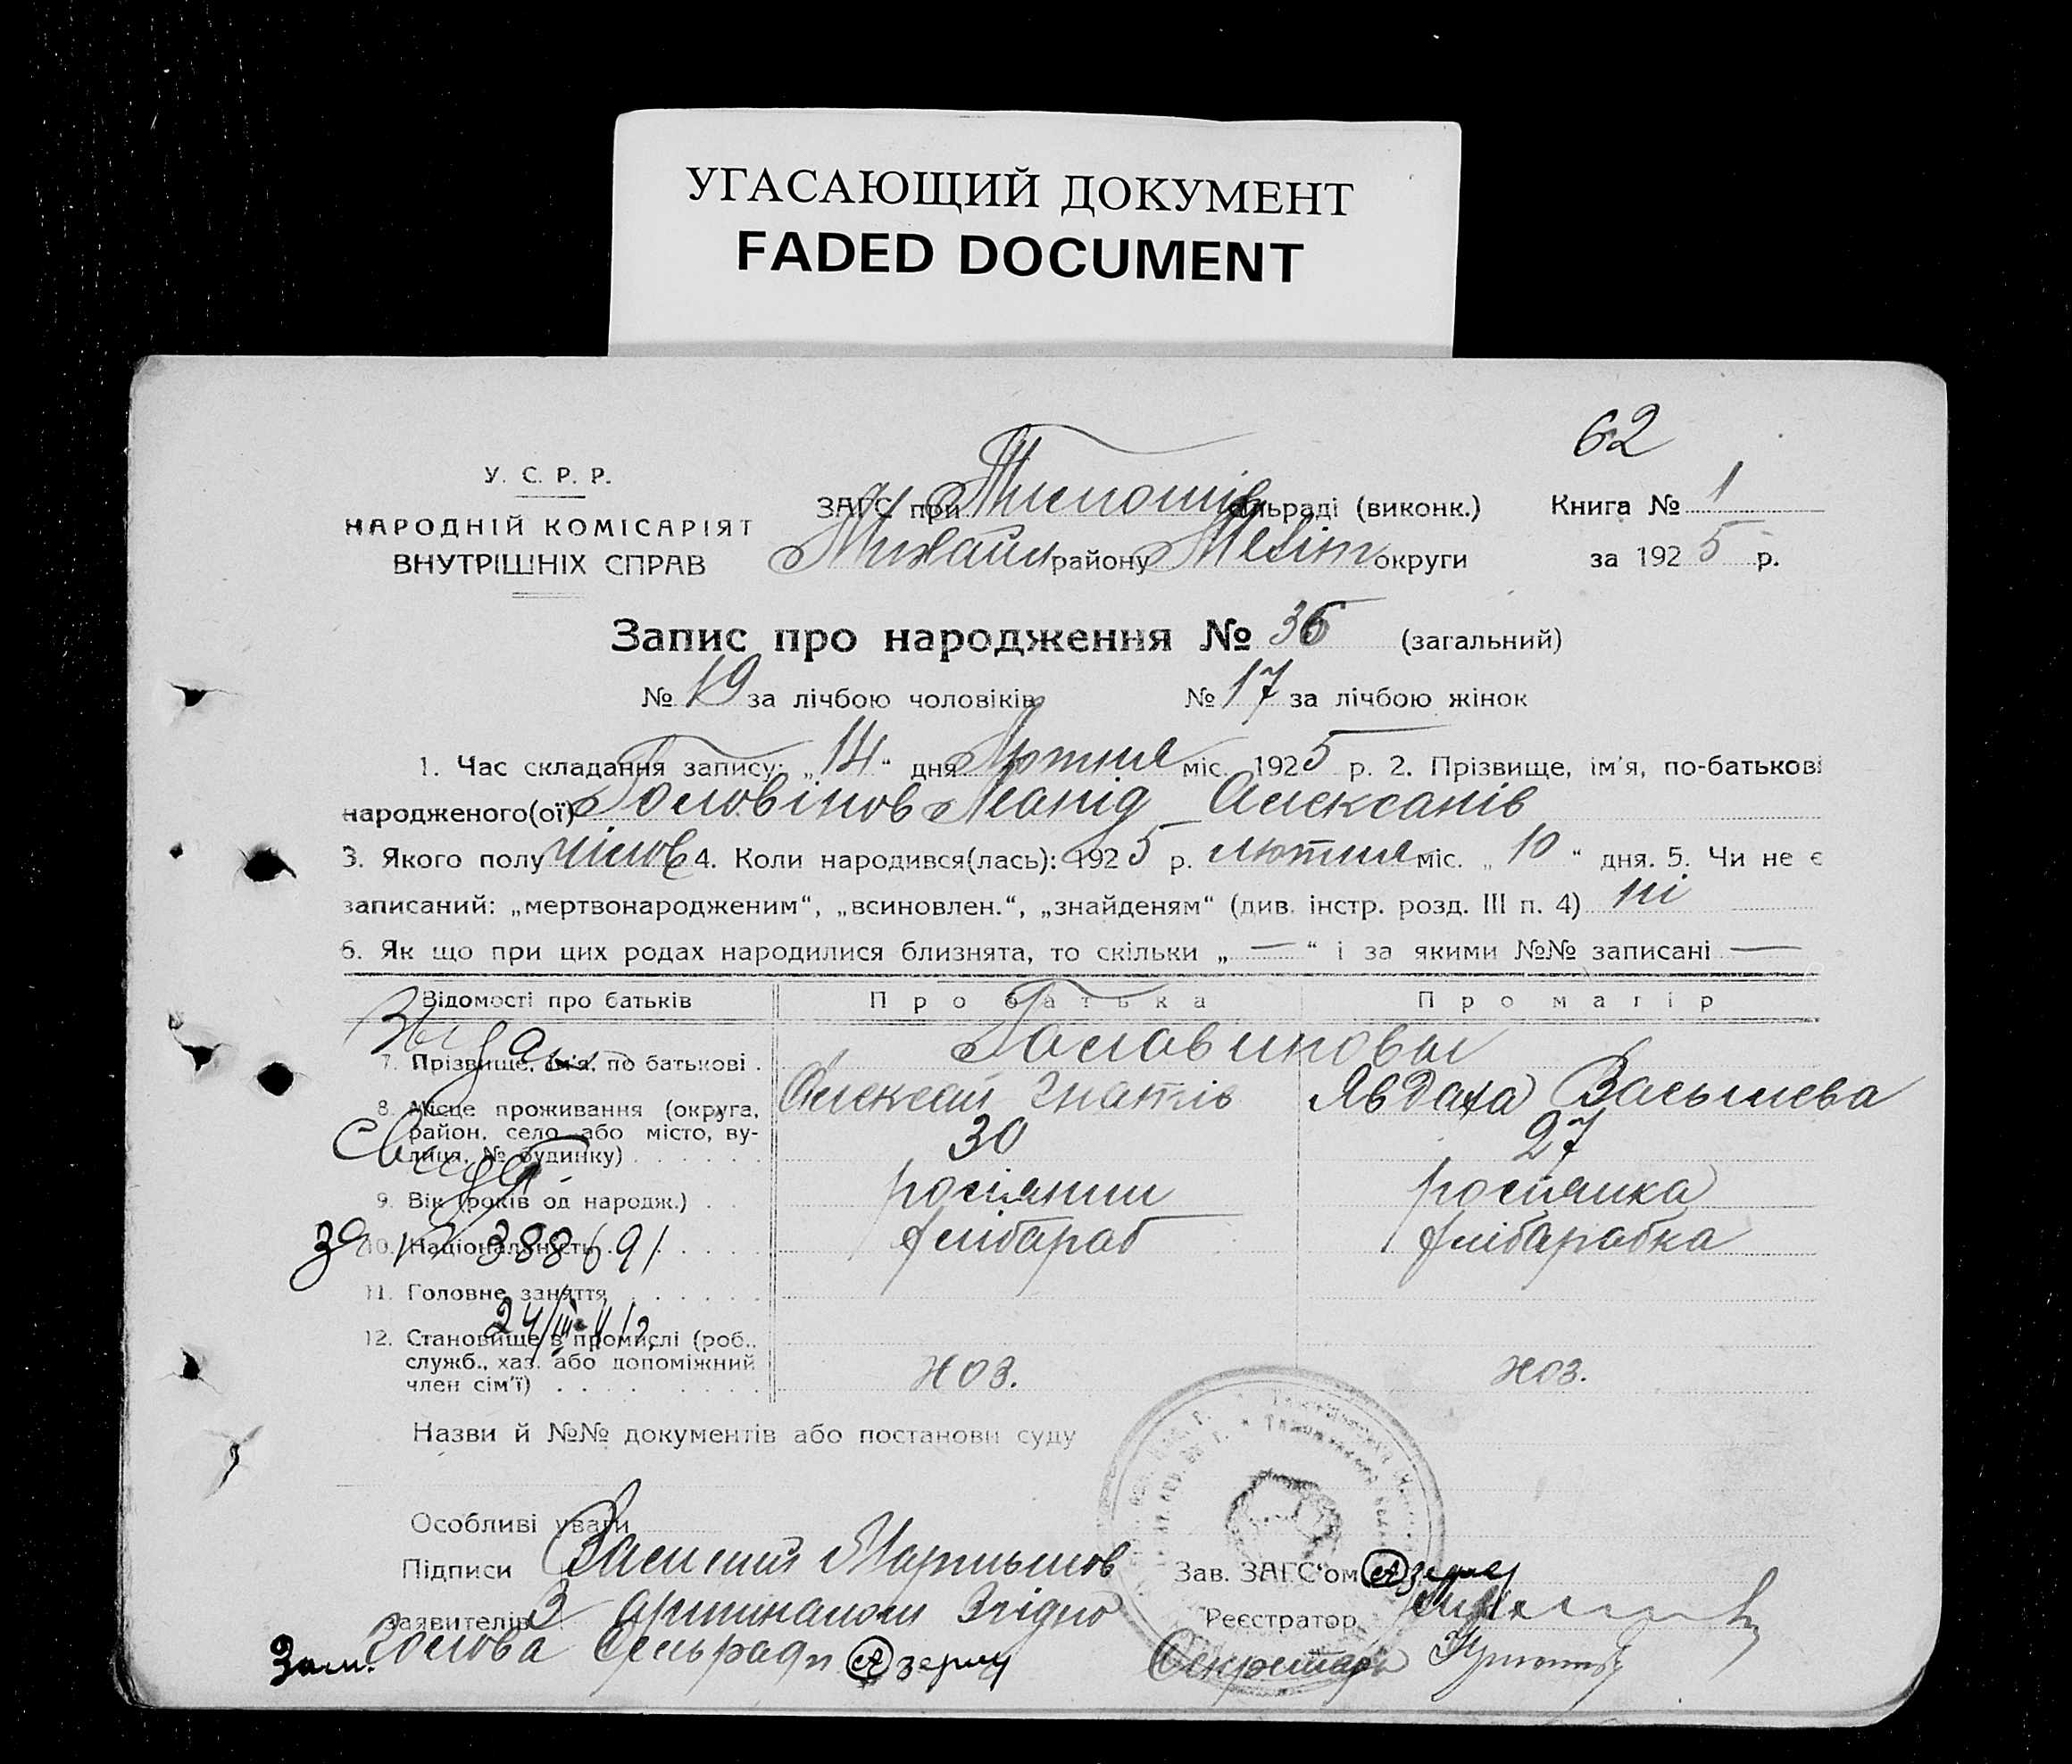 УГАСАЮЩИЙ ДОКУМЕНТ
FADED DOCUMENT
62
У. С. Р. Р.
НАРОДНІЙ КОМІСАРІЯТ
ВНУТРІШНІХ СПРАВ
ЗАГС при сільраді (виконк.)
Михайл району Меліт округи
Книга № 1
за 1925 р.
Запис про народження № 36 (загальний)
№ 19 за лічбою чоловіків № 17 за лічбою жінок
1. Час складання запису: „14“ дня Лютня міс. 1925 р. 2. Прізвище, ім'я, по-батькові
народженого(ої) Головінов Леонід Алексанів
3. Якого полу чілов 4. Коли народився(лась): 1925 р. лютня міс. „10“ дня. 5. Чи не є
записаний: „мертвонародженим“, „всиновлен.“, „знайденям“ (див. інстр. розд. III п. 4) ні
6. Як що при цих родах народилися близнята, то скільки „—“ і за якими №№ записані —
Відомості про батьків Про батька Про матір
7. Прізвище, ім'я, по батькові . Головиновы
Алексей Гнатів Явдаха Васылева
8. Місце проживання (округа,
район, село або місто, ву-
лиця, № будинку) 30 27
9. Вік (років од народж.) росіянин росіянка
10. Національність хлібараб хлібарабка
388691
11. Головне заняття
24/III
12. Становище в промислі (роб.,
служб., хаз. або допоміжний
член сім'ї) хоз. хоз.
Назви й №№ документів або постанови суду
Особливі уваги
Підписи Василий Мартынов Зав. ЗАГС'ом
заявителів З аригиналом Згідно Реєстратор
Зам. Голова Сельради Секретарь